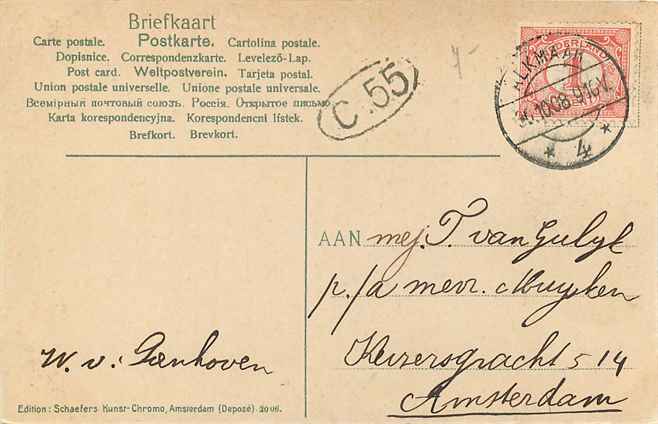 Briefkaart
Carte postale. Postkarte. Cartolina postale.
Dopisnice. Correspondenzkarte. Levelező-Lap.
Post card. Weltpostverein. Tarjeta postal.
Union postale universelle. Unione postale universale.
Всемірный почтовый союзъ. Россія. Открытое письмо
Karta korespondencyjna. Korespondencni lístek.
Brefkort. Brevkort.
C. 55
NEDERLAND
ALKMAAR
30.10.08. 9-10V.
* 4 *
AAN mej. T. van Gulyk
p./a mevr. Muysken
Keizersgracht 514
Amsterdam
W. v:
Edition: Schaefers Kunst-Chromo, Amsterdam (Deposé)